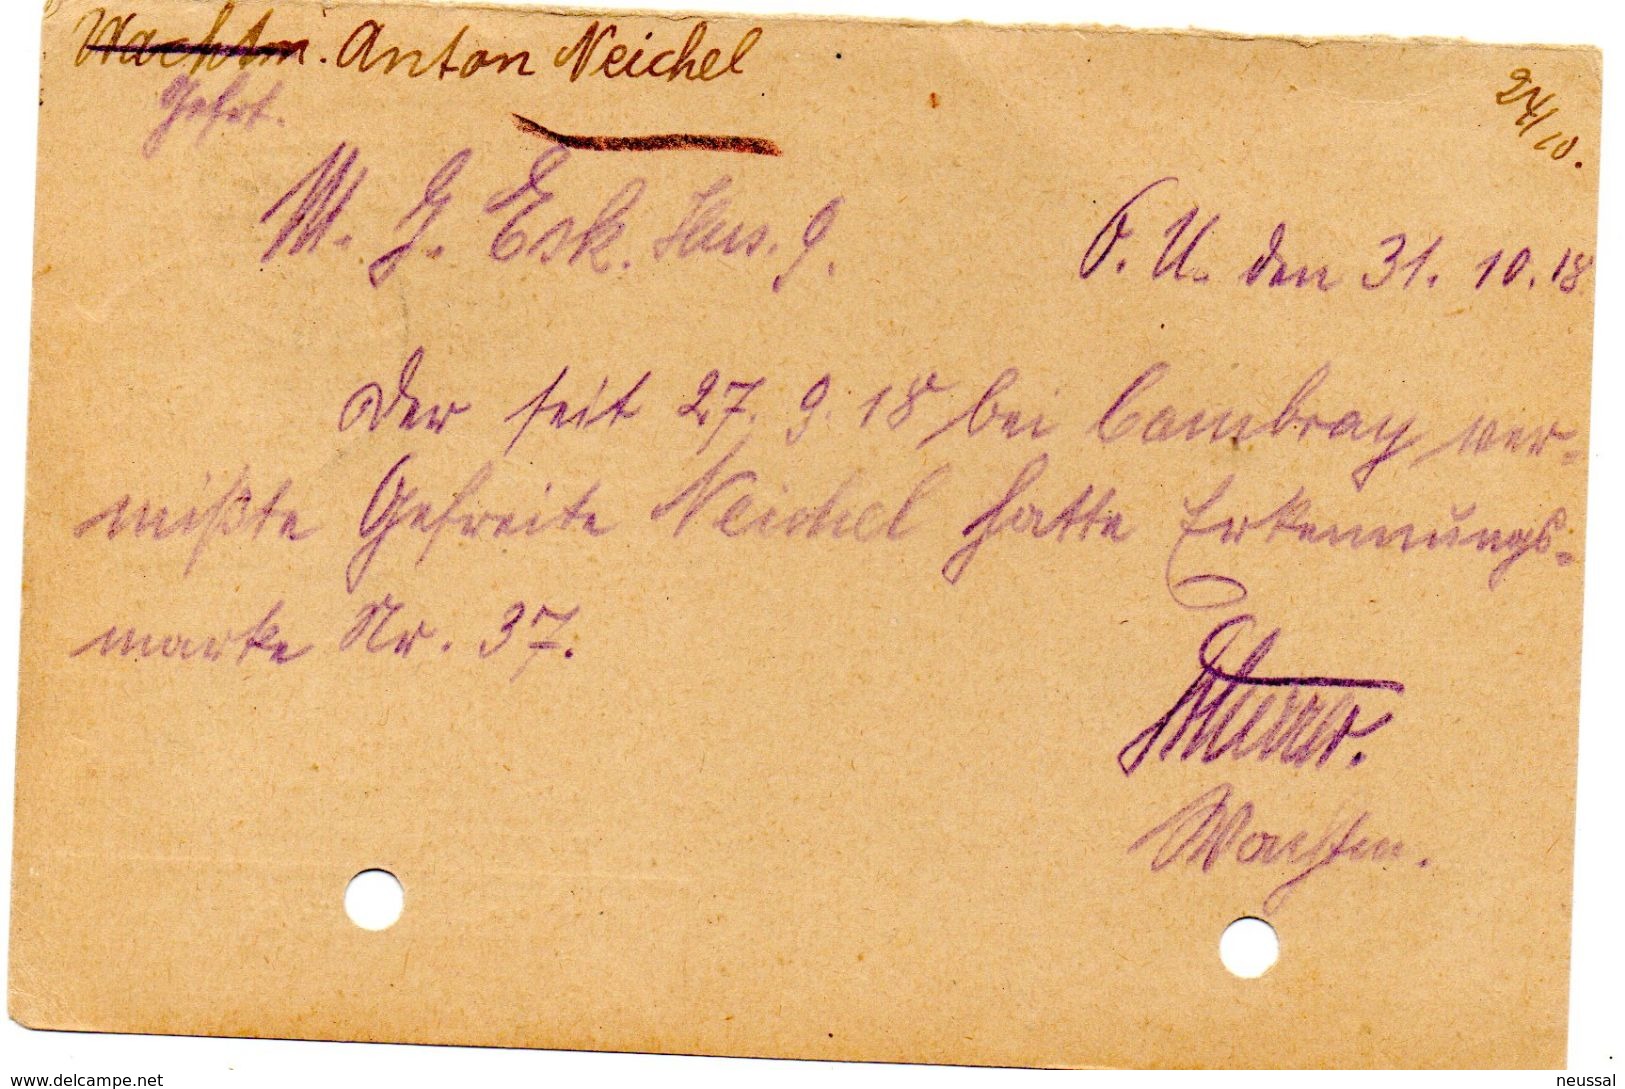 Wachtm. Anton Neichel
Gefrt.
24/10.
M. G. Esk. Hus. 9. O. U. den 31. 10. 18.
Der seit 27. 9. 18 bei Cambray ver-
mißte Gefreite Neichel hatte Erkennungs-
marke Nr. 37.
Wachtm.
www.delcampe.net
neussal